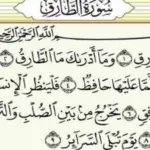 سُورَةُ الطَّارِقِ
بِسْمِ اللَّهِ الرَّحْمَٰنِ الرَّحِيمِ
رِقِ ١ وَمَا أَدْرَىٰكَ مَا الطَّارِقُ ٢
لَمَّا عَلَيْهَا حَافِظٌ ٤ فَلْيَنظُرِ الْإِنسَ
فِقٍ ٦ يَخْرُجُ مِن بَيْنِ الصُّلْبِ وَالتَّرَ
٨ يَوْمَ تُبْلَى السَّرَائِرُ ٩